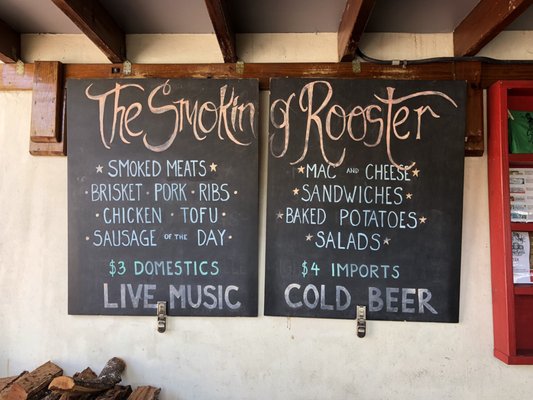 The Smoking Rooster
SMOKED MEATS
BRISKET · PORK · RIBS
CHICKEN · TOFU
SAUSAGE OF THE DAY
$3 DOMESTICS
LIVE MUSIC
MAC AND CHEESE
SANDWICHES
BAKED POTATOES
SALADS
$4 IMPORTS
COLD BEER